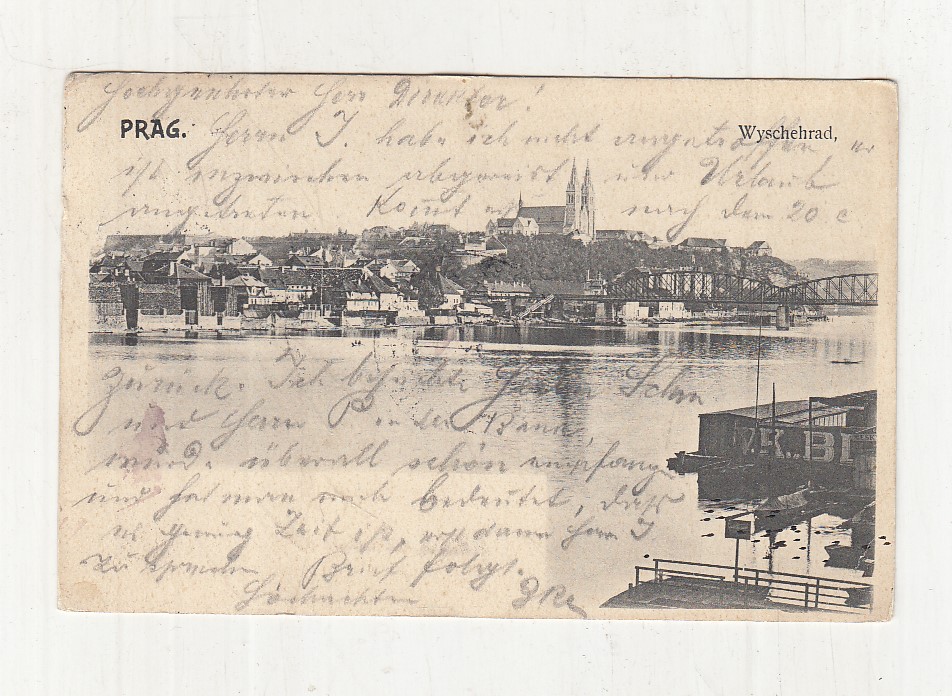 Hochgeehrter Herr Direktor!
PRAG.
Wyschehrad,
Herrn J. habe ich nicht angetroffen er
ist inzwischen abgereist u. Urlaub
angetreten Kommt er nach dem 20 c
zurück. Ich besuchte Herrn Schn
und Herrn P in der Bank,
wurde überall schön empfangen
und hat man mich bedeutet, dass
es genug Zeit ist, erst dann Herr J
zu sprechen Brief folgt.
K.BI